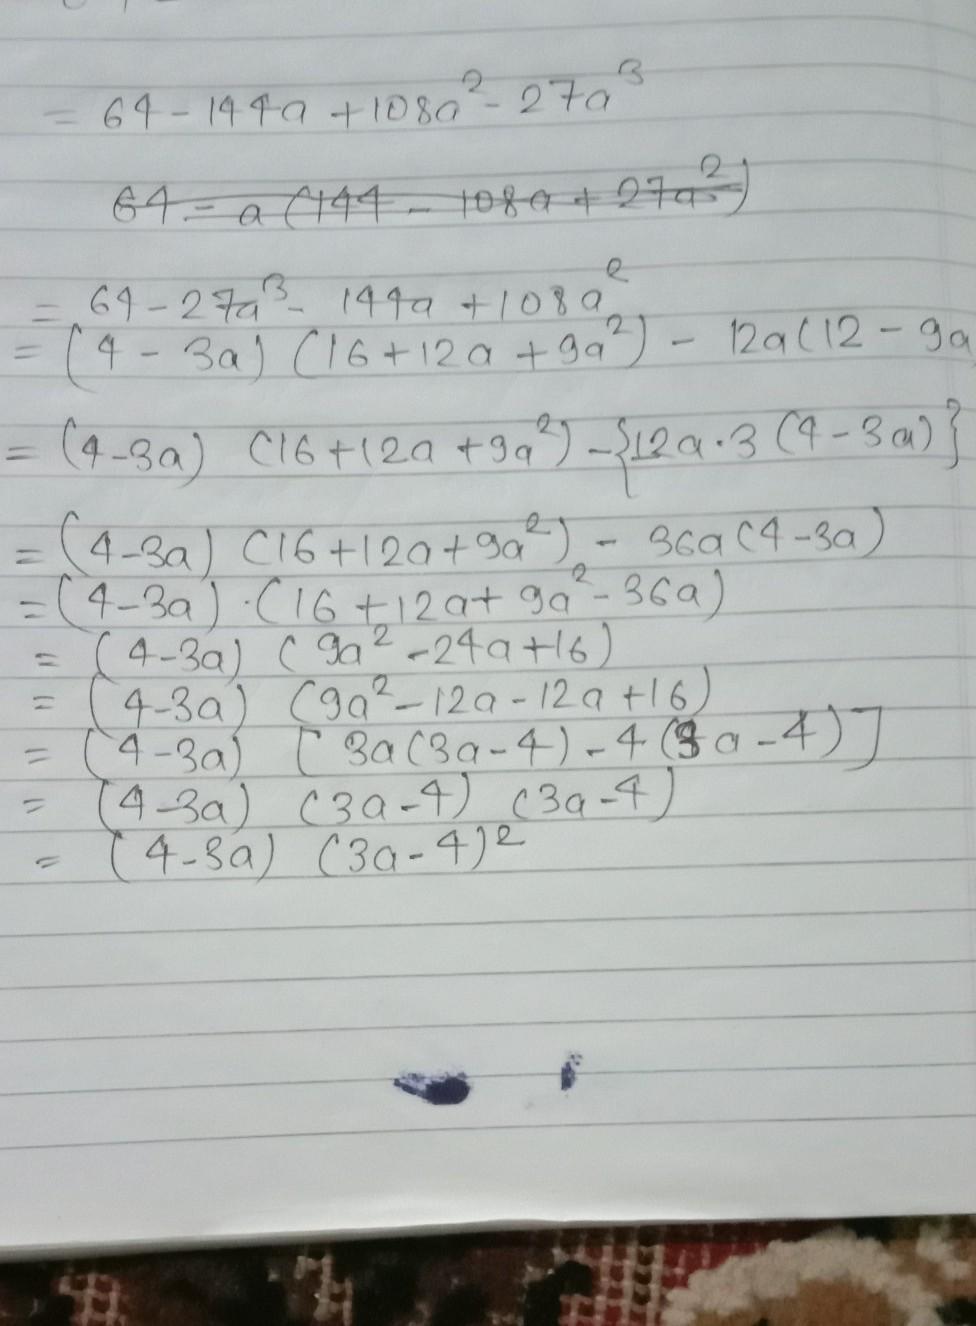 = 64 - 144a + 108a² - 27a³
64 - a (144 - 108a + 27a²)
= 64 - 27a³ - 144a + 108a²
= (4 - 3a) (16 + 12a + 9a²) - 12a(12 - 9a
= (4-3a) (16+12a+9a²) - {12a·3(4-3a)}
= (4-3a) (16+12a+9a²) - 36a(4-3a)
= (4-3a)·(16+12a+9a²-36a)
= (4-3a) (9a²-24a+16)
= (4-3a) (9a²-12a-12a+16)
= (4-3a) [3a(3a-4)-4(3a-4)]
= (4-3a) (3a-4) (3a-4)
= (4-3a) (3a-4)²